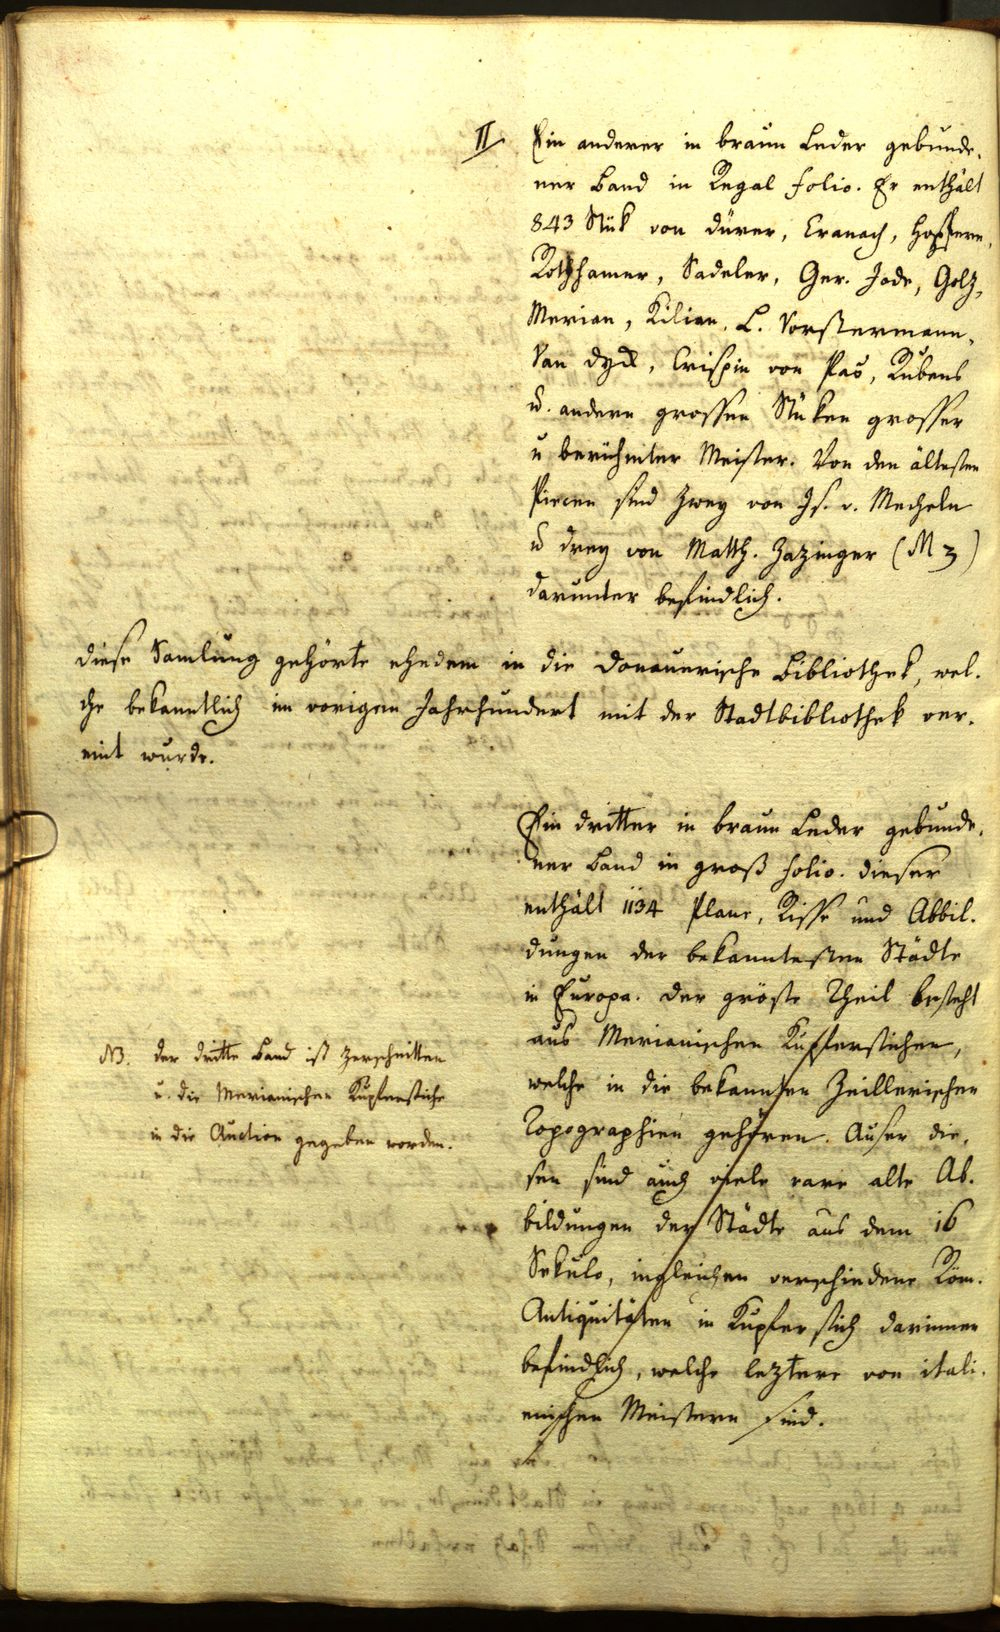 II Ein anderer in braun Leder gebunde-
ner Band in Regal folio. Er enthält
843 Stük von Dürer, Cranach, Hopfern,
Rothhamer, Sadeler, Ger. Jode, Golz,
Merian, Kilian, L. Vorstermann,
Van Dyck, Crispin von Pas, Rubens
u. andern grossen Stüken grosser
u berühmter Meister. Von den ältesten
Piecen sind zwey von Is. v. Mecheln
u drey von Matth. Zazinger (M Z)
darunter befindlich.
Diese Samlung gehörte ehedem in die Donauerische Bibliothek, wel-
che bekanntlich im vorigen Jahrhundert mit der Stadtbibliothek ver-
eint wurde.
Ein dritter in braun Leder gebunde-
ner Band in groß folio. Dieser
enthält 1134 Plane, Risse und Abbil-
dungen der bekanntesten Städte
in Europa. Der gröste Theil besteht
aus Merianischen Kupferstichen,
welche in die bekannten Zeillerischen
Topographien gehören. Auser die-
sen sind auch viele rare alte Ab-
bildungen der Städte aus dem 16
Sekulo, ingleichen verschiedene Röm.
Antiquitäten in Kupferstich darinnen
befindlich, welche leztere von itali-
enischen Meistern sind.
NB. Der dritte Band ist zerschnitten
u. die Merianischen Kupferstiche
in die Auction gegeben worden.